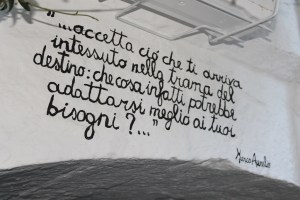 "...accetta ciò che ti arriva
intessuto nella trama del
destino: che cosa infatti potrebbe
adattarsi meglio ai tuoi
bisogni?..."
Marco Aurelio